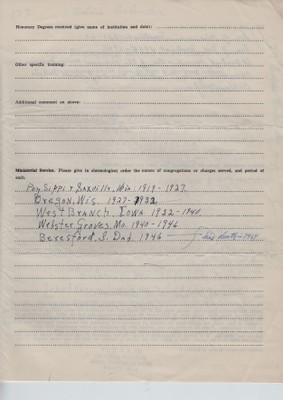 Honorary Degrees received (give name of institution and date):
Other specific training:
Additional comment on above:
Ministerial Service. Please give in chronological order the names of congregations or charges served, and period of
each.
Poy Sippi & Saxville, Wis. 1919-1927.
Oregon, Wis. 1927-1932
West Branch, Iowa 1932-1940.
Webster Groves, Mo. 1940-1946
Beresford, S. Dak. 1946 —